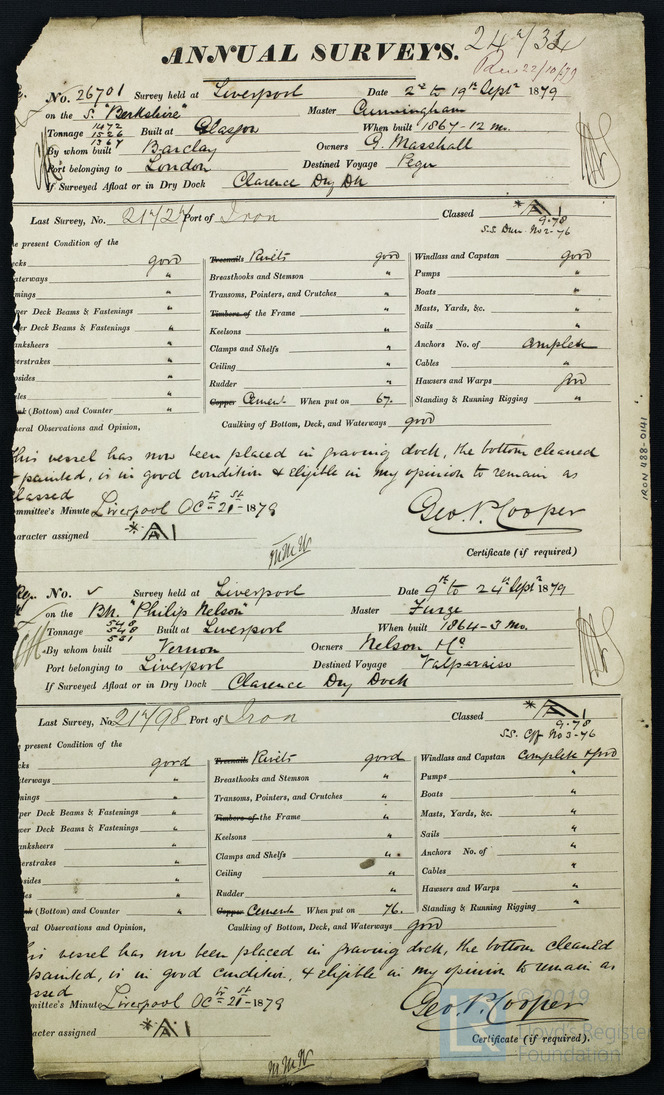 24
ANNUAL SURVEYS.
Rec 22/10/79
No. 26701 Survey held at Liverpool Date 2nd to 19th Sept 1879
on the S. "Berkshire" Master Cunningham
Tonnage 1472 1526 1367 Built at Glasgow When built 1867-12 mo.
By whom built Barclay Owners G. Marshall
Port belonging to London Destined Voyage Pegu
If Surveyed Afloat or in Dry Dock Clarence Dry Dk
Last Survey, No. Port of Iron Classed *A1
9.78
S.S. No 2-76
e present Condition of the
cks good Treenails Rivets good Windlass and Capstan good
aterways " Breasthooks and Stemson " Pumps "
mings " Transoms, Pointers, and Crutches " Boats "
per Deck Beams & Fastenings " Timbers of the Frame " Masts, Yards, &c. "
er Deck Beams & Fastenings " Keelsons " Sails "
anksheers " Clamps and Shelfs " Anchors No. of complete
erstrakes " Ceiling " Cables "
psides " Rudder " Hawsers and Warps good
les " Copper Cement When put on 67. Standing & Running Rigging "
nk (Bottom) and Counter "
eral Observations and Opinion, Caulking of Bottom, Deck, and Waterways good
This vessel has now been placed in graving dock, the bottom cleaned
painted, is in good condition & eligible in my opinion to remain as
classed
mmittee's Minute Liverpool Oct 21st 1879 Geo. P. Cooper
aracter assigned *A1
Certificate (if required)
IRON 488-0141
No. ✓ Survey held at Liverpool Date 9th to 24th Sept 1879
on the Bk. "Philip Nelson" Master Furge
Tonnage 548 548 531 Built at Liverpool When built 1864-3 mo.
By whom built Vernon Owners Nelson & Co
Port belonging to Liverpool Destined Voyage Valparaiso
If Surveyed Afloat or in Dry Dock Clarence Dry Dock
Last Survey, No. Port of Iron Classed *A1
9.78
S.S. No 3-76
present Condition of the
cks good Treenails Rivets good Windlass and Capstan Complete & good
terways " Breasthooks and Stemson " Pumps "
nings " Transoms, Pointers, and Crutches " Boats "
per Deck Beams & Fastenings " Timbers of the Frame " Masts, Yards, &c. "
wer Deck Beams & Fastenings " Keelsons " Sails "
anksheers " Clamps and Shelfs " Anchors No. of "
erstrakes " Ceiling " Cables "
psides " Rudder " Hawsers and Warps "
les " Copper Cement When put on 76. Standing & Running Rigging "
nk (Bottom) and Counter "
ral Observations and Opinion, Caulking of Bottom, Deck, and Waterways good
is vessel has now been placed in graving dock, the bottom cleaned
painted, is in good condition, & eligible in my opinion to remain as
ssed
mittee's Minute Liverpool Oct 21st 1879 Geo. P. Cooper
racter assigned *A1
Certificate (if required).
© 2019
Lloyd's Register
Foundation